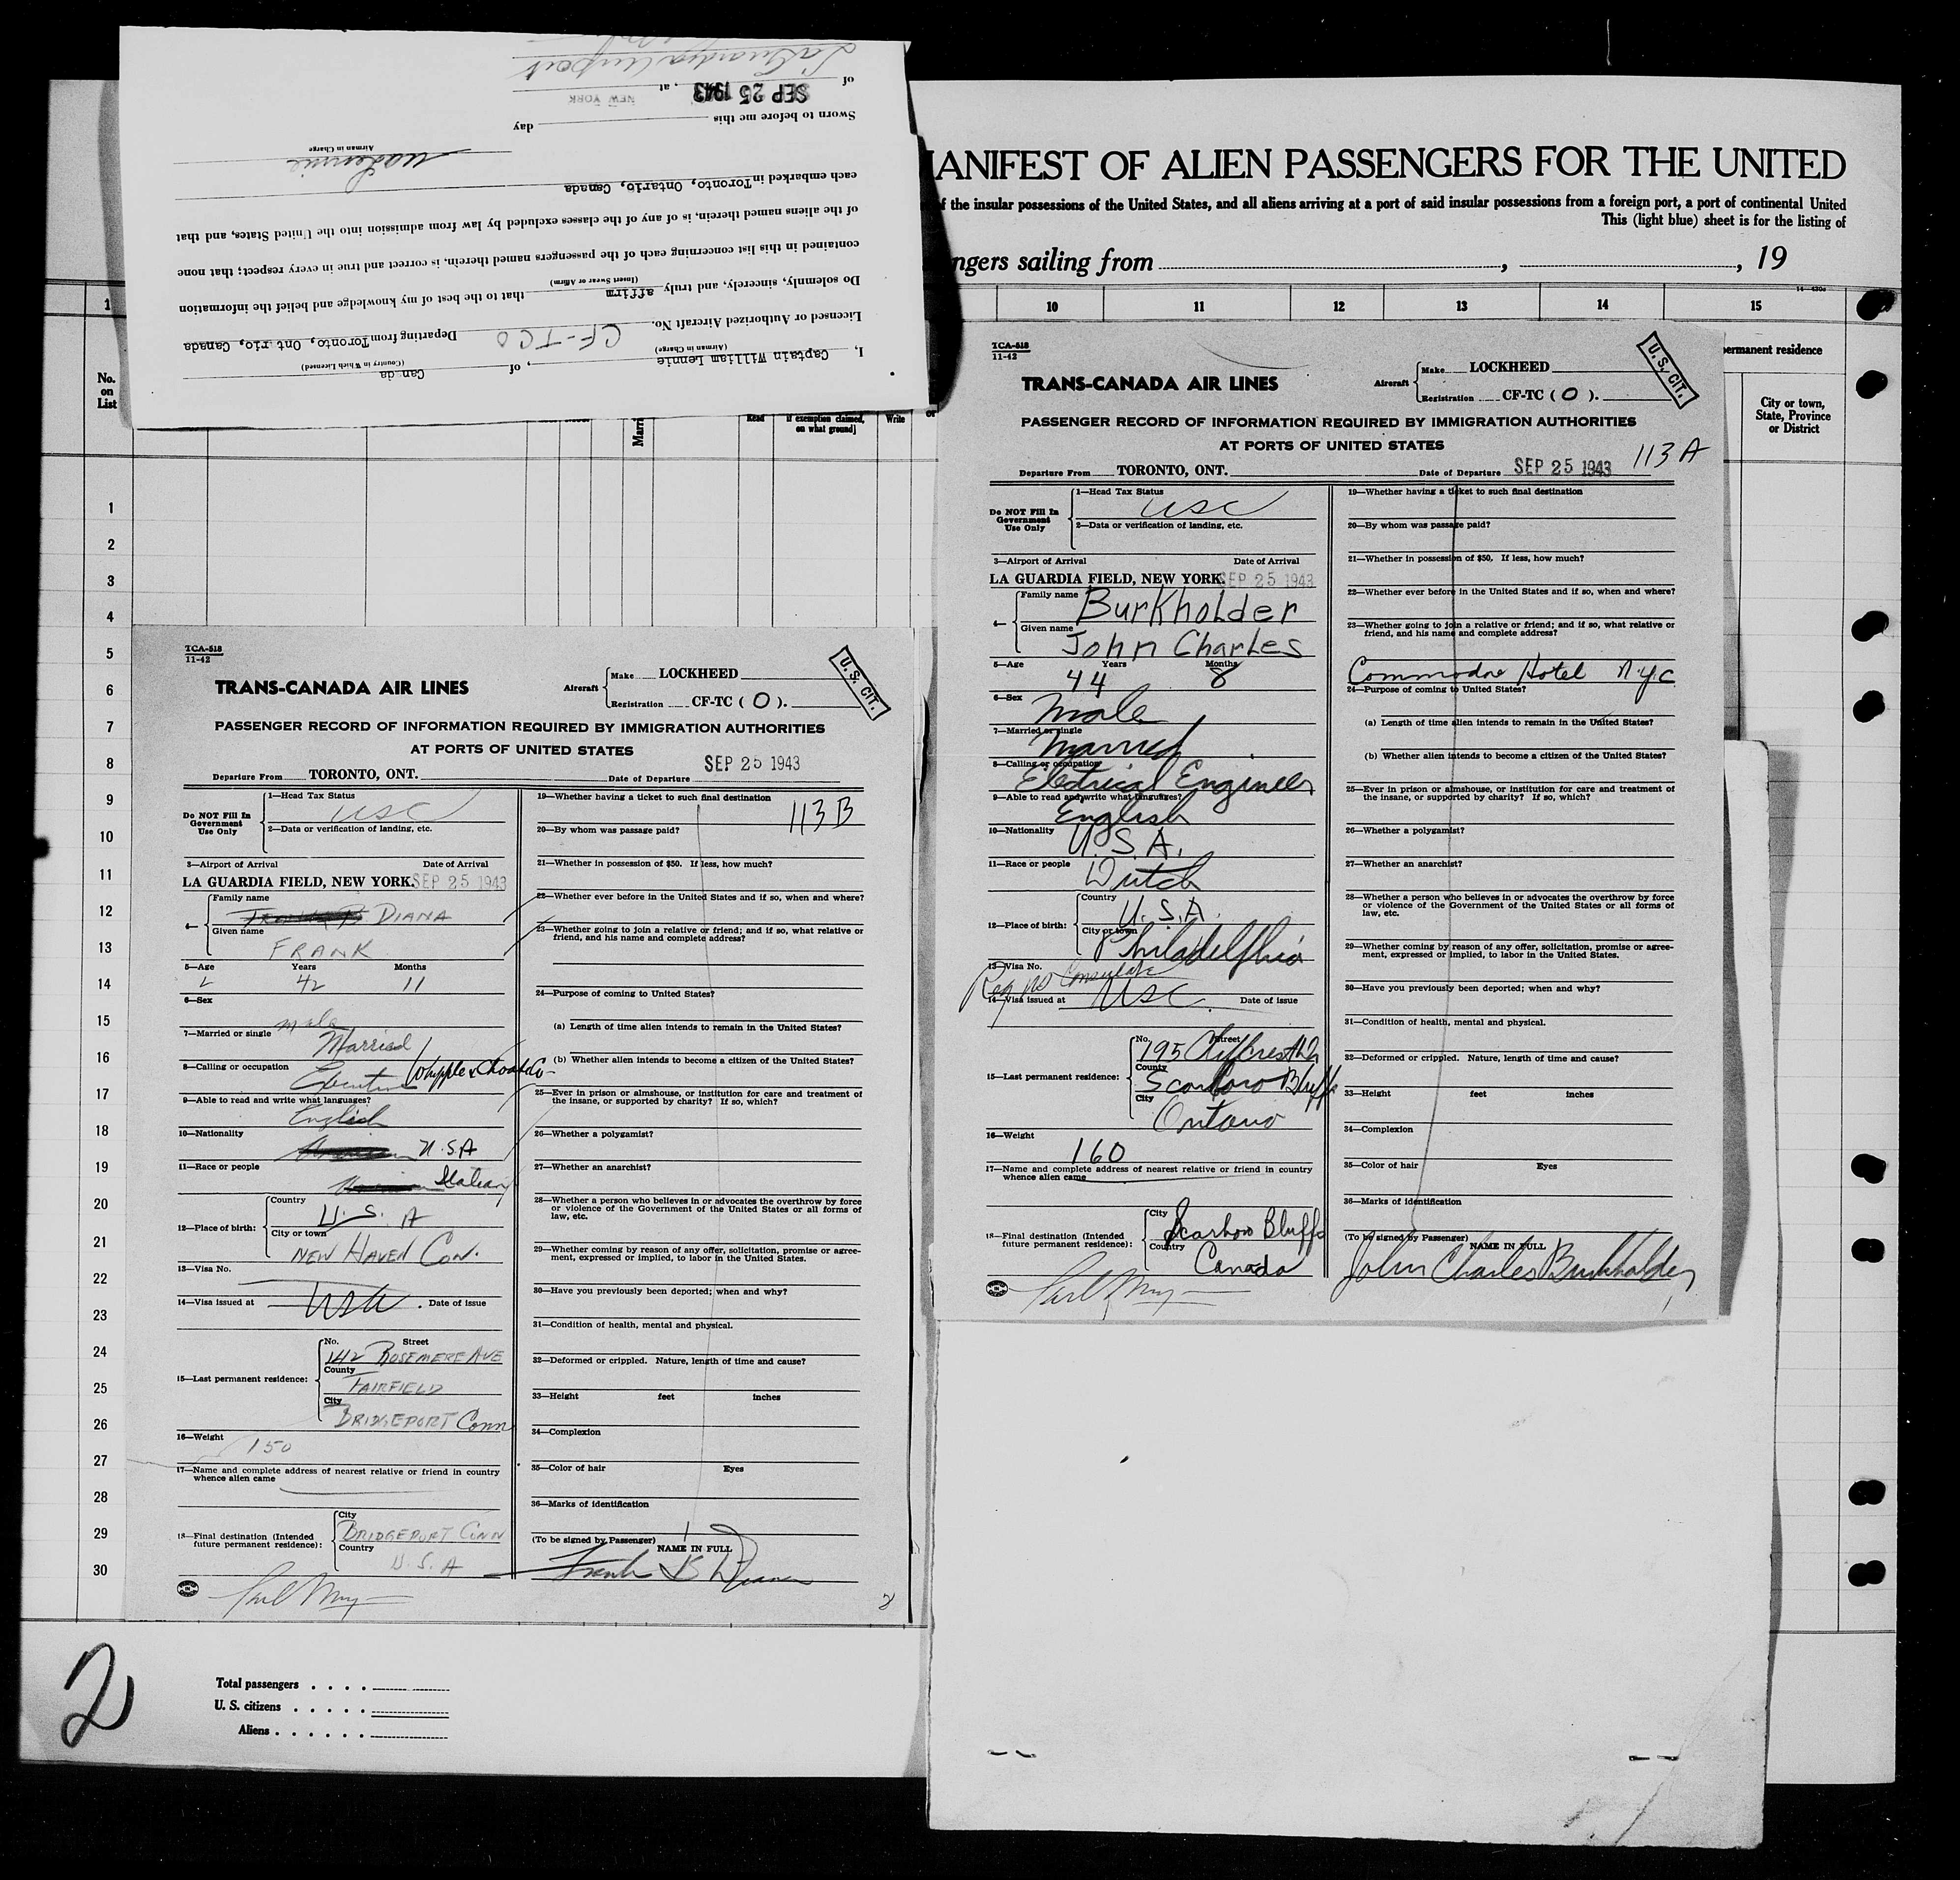 I, Captain William Lennie, of Canada
(Airman in Charge) (Country in Which Licensed)
Licensed or Authorized Aircraft No. CF-TCO Departing from Toronto, Ont rio, Canada
Do solemnly, sincerely, and truly affirm that to the best of my knowledge and belief the information
(Insert Swear or Affirm)
contained in this list concerning each of the passengers named therein, is correct and true in every respect; that none
of the aliens named therein, is of any of the classes excluded by law from admission into the United States, and that
each embarked in Toronto, Ontario, Canada
Airman in Charge
Sworn to before me this day
of SEP 25 1943, at NEW YORK
LaGuardia Airport
MANIFEST OF ALIEN PASSENGERS FOR THE UNITED
of the insular possessions of the United States, and all aliens arriving at a port of said insular possessions from a foreign port, a port of continental United
This (light blue) sheet is for the listing of
ngers sailing from , , 19
1 10 11 12 13 14 15
No.
on
List
Read
if exemption claimed,
on what ground]
Write
ermanent residence
City or town,
State, Province
or District
1
2
3
4
5
6
7
8
9
10
11
12
13
14
15
16
17
18
19
20
21
22
23
24
25
26
27
28
29
30
TCA-518
11-42
U.S. CIT.
TRANS-CANADA AIR LINES
Aircraft
Make LOCKHEED
Registration CF-TC ( O ).
PASSENGER RECORD OF INFORMATION REQUIRED BY IMMIGRATION AUTHORITIES
AT PORTS OF UNITED STATES
Departure From TORONTO, ONT. Date of Departure SEP 25 1943
Do NOT Fill In
Government
Use Only
1—Head Tax Status
USC
2—Data or verification of landing, etc.
3—Airport of Arrival Date of Arrival
LA GUARDIA FIELD, NEW YORK. SEP 25 1943
4—
Family name
DIANA
Given name
FRANK
5—Age Years Months
42 11
6—Sex
male
7—Married or single
Married
8—Calling or occupation
Executive Whipple & Choate Co
9—Able to read and write what languages?
English
10—Nationality
U.S.A
11—Race or people
Italian
12—Place of birth:
Country
U. S. A
City or town
NEW HAVEN CON.
13—Visa No.
14—Visa issued at Date of issue
15—Last permanent residence:
No. Street
142 ROSEMERE AVE
County
FAIRFIELD
City
BRIDGEPORT Conn
16—Weight
150
17—Name and complete address of nearest relative or friend in country
whence alien came
18—Final destination (Intended
future permanent residence):
City
BRIDGEPORT CONN
Country
U. S. A
19—Whether having a ticket to such final destination
113 B
20—By whom was passage paid?
21—Whether in possession of $50. If less, how much?
22—Whether ever before in the United States and if so, when and where?
23—Whether going to join a relative or friend; and if so, what relative or
friend, and his name and complete address?
24—Purpose of coming to United States?
(a) Length of time alien intends to remain in the United States?
(b) Whether alien intends to become a citizen of the United States?
25—Ever in prison or almshouse, or institution for care and treatment of
the insane, or supported by charity? If so, which?
26—Whether a polygamist?
27—Whether an anarchist?
28—Whether a person who believes in or advocates the overthrow by force
or violence of the Government of the United States or all forms of
law, etc.
29—Whether coming by reason of any offer, solicitation, promise or agree-
ment, expressed or implied, to labor in the United States.
30—Have you previously been deported; when and why?
31—Condition of health, mental and physical.
32—Deformed or crippled. Nature, length of time and cause?
33—Height feet inches
34—Complexion
35—Color of hair Eyes
36—Marks of identification
(To be signed by Passenger) NAME IN FULL
Frank Diana
2
Total passengers
U. S. citizens
Aliens
TCA-518
11-42
U.S. CIT.
TRANS-CANADA AIR LINES
Aircraft
Make LOCKHEED
Registration CF-TC ( O ).
PASSENGER RECORD OF INFORMATION REQUIRED BY IMMIGRATION AUTHORITIES
AT PORTS OF UNITED STATES
113 A
Departure From TORONTO, ONT. Date of Departure SEP 25 1943
Do NOT Fill In
Government
Use Only
1—Head Tax Status
USC
2—Data or verification of landing, etc.
3—Airport of Arrival Date of Arrival
LA GUARDIA FIELD, NEW YORK. SEP 25 1943
4—
Family name
Burkholder
Given name
John Charles
5—Age Years Months
44 8
6—Sex
Male
7—Married or single
Married
8—Calling or occupation
Eletrical Engineer
9—Able to read and write what languages?
English
10—Nationality
U.S.A.
11—Race or people
Dutch
12—Place of birth:
Country
U.S.A.
City or town
Philadelphia
13—Visa No.
Consulate
14—Visa issued at USC Date of issue
15—Last permanent residence:
No. Street
195
County
Scarboro Bluffs
City
Ontario
16—Weight
160
17—Name and complete address of nearest relative or friend in country
whence alien came
18—Final destination (Intended
future permanent residence):
City
Scarboro Bluffs
Country
Canada
19—Whether having a ticket to such final destination
20—By whom was passage paid?
21—Whether in possession of $50. If less, how much?
22—Whether ever before in the United States and if so, when and where?
23—Whether going to join a relative or friend; and if so, what relative or
friend, and his name and complete address?
Commodore Hotel N.Y.C
24—Purpose of coming to United States?
(a) Length of time alien intends to remain in the United States?
(b) Whether alien intends to become a citizen of the United States?
25—Ever in prison or almshouse, or institution for care and treatment of
the insane, or supported by charity? If so, which?
26—Whether a polygamist?
27—Whether an anarchist?
28—Whether a person who believes in or advocates the overthrow by force
or violence of the Government of the United States or all forms of
law, etc.
29—Whether coming by reason of any offer, solicitation, promise or agree-
ment, expressed or implied, to labor in the United States.
30—Have you previously been deported; when and why?
31—Condition of health, mental and physical.
32—Deformed or crippled. Nature, length of time and cause?
33—Height feet inches
34—Complexion
35—Color of hair Eyes
36—Marks of identification
(To be signed by Passenger) NAME IN FULL
John Charles Burkholder